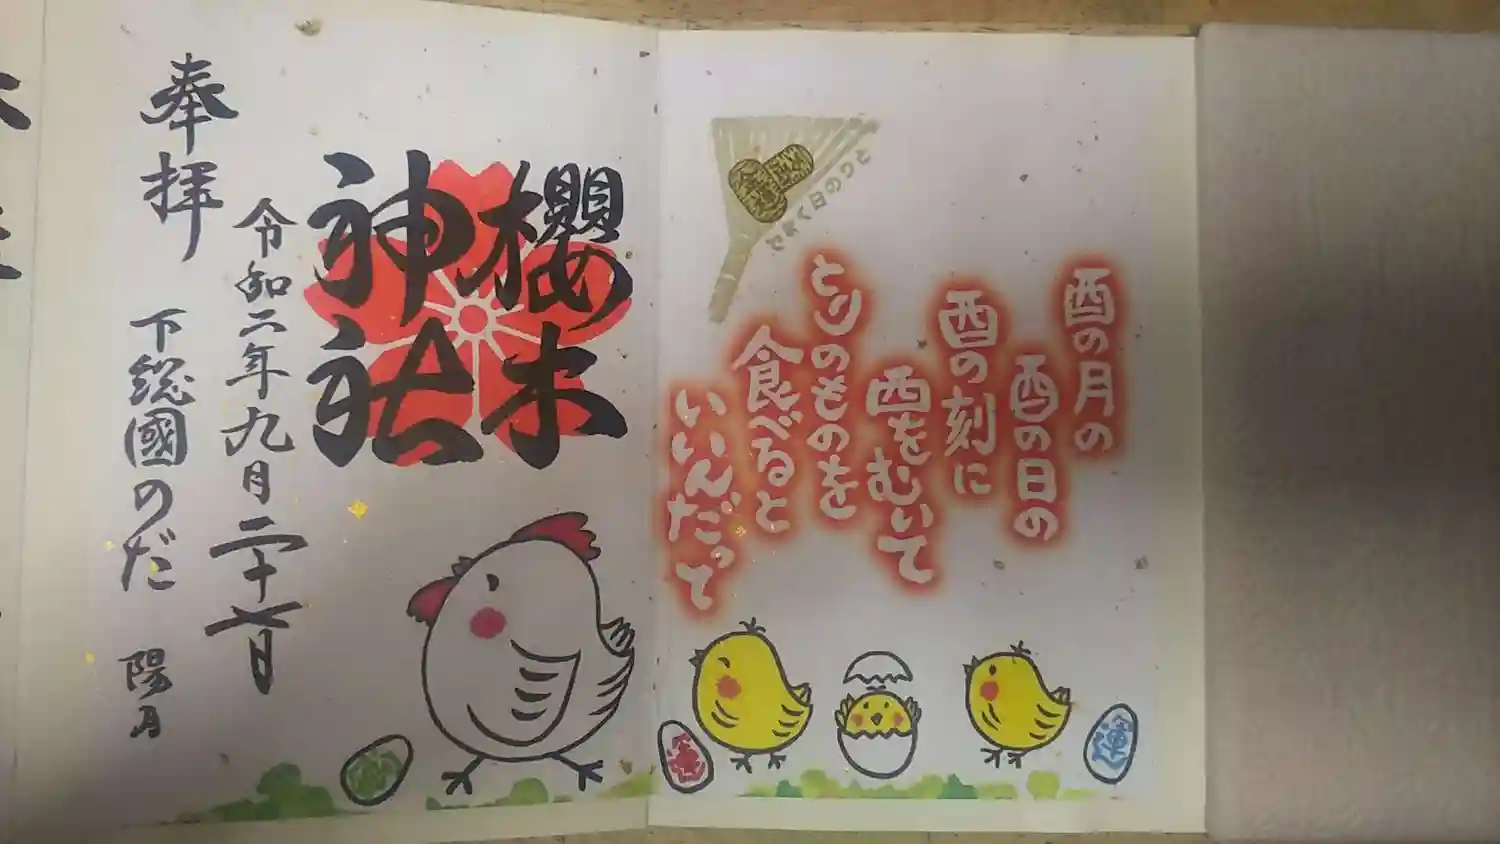 酉の月の
酉の日の
酉の刻に
酉をむいて
とりのものを
食べると
いいんだって
櫻木
神社
令和二年九月二十七日
奉拝
下総國のだ
陽月
運